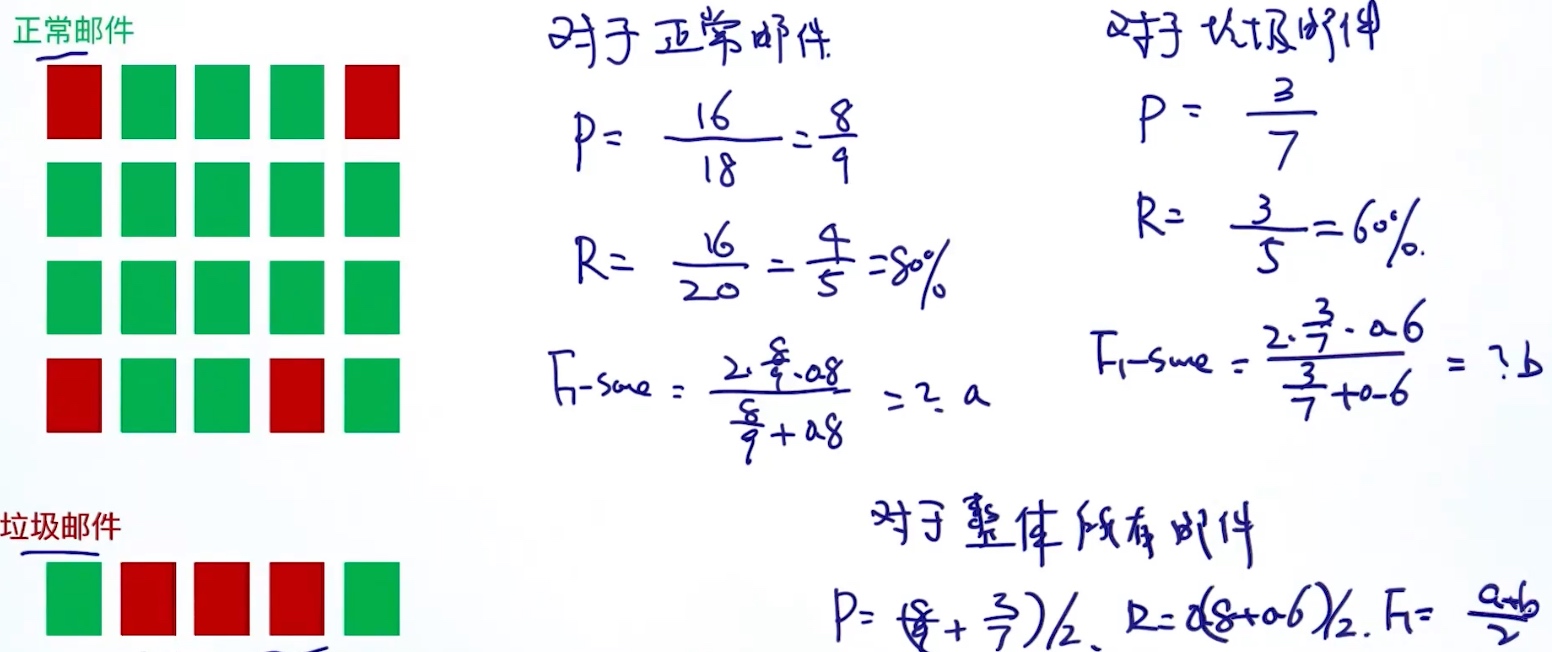 正常邮件
对于正常邮件
P = 16/18 = 8/9
R = 16/20 = 4/5 = 80%
F1-score = (2·8/9·0.8)/(8/9+0.8) = ? a
对于垃圾邮件
P = 3/7
R = 3/5 = 60%.
F1-score = (2·3/7·0.6)/(3/7+0.6) = ? b
垃圾邮件
对于整体所有邮件
P = (8/9 + 3/7)/2、 R = (0.8+0.6)/2. F1 = (a+b)/2